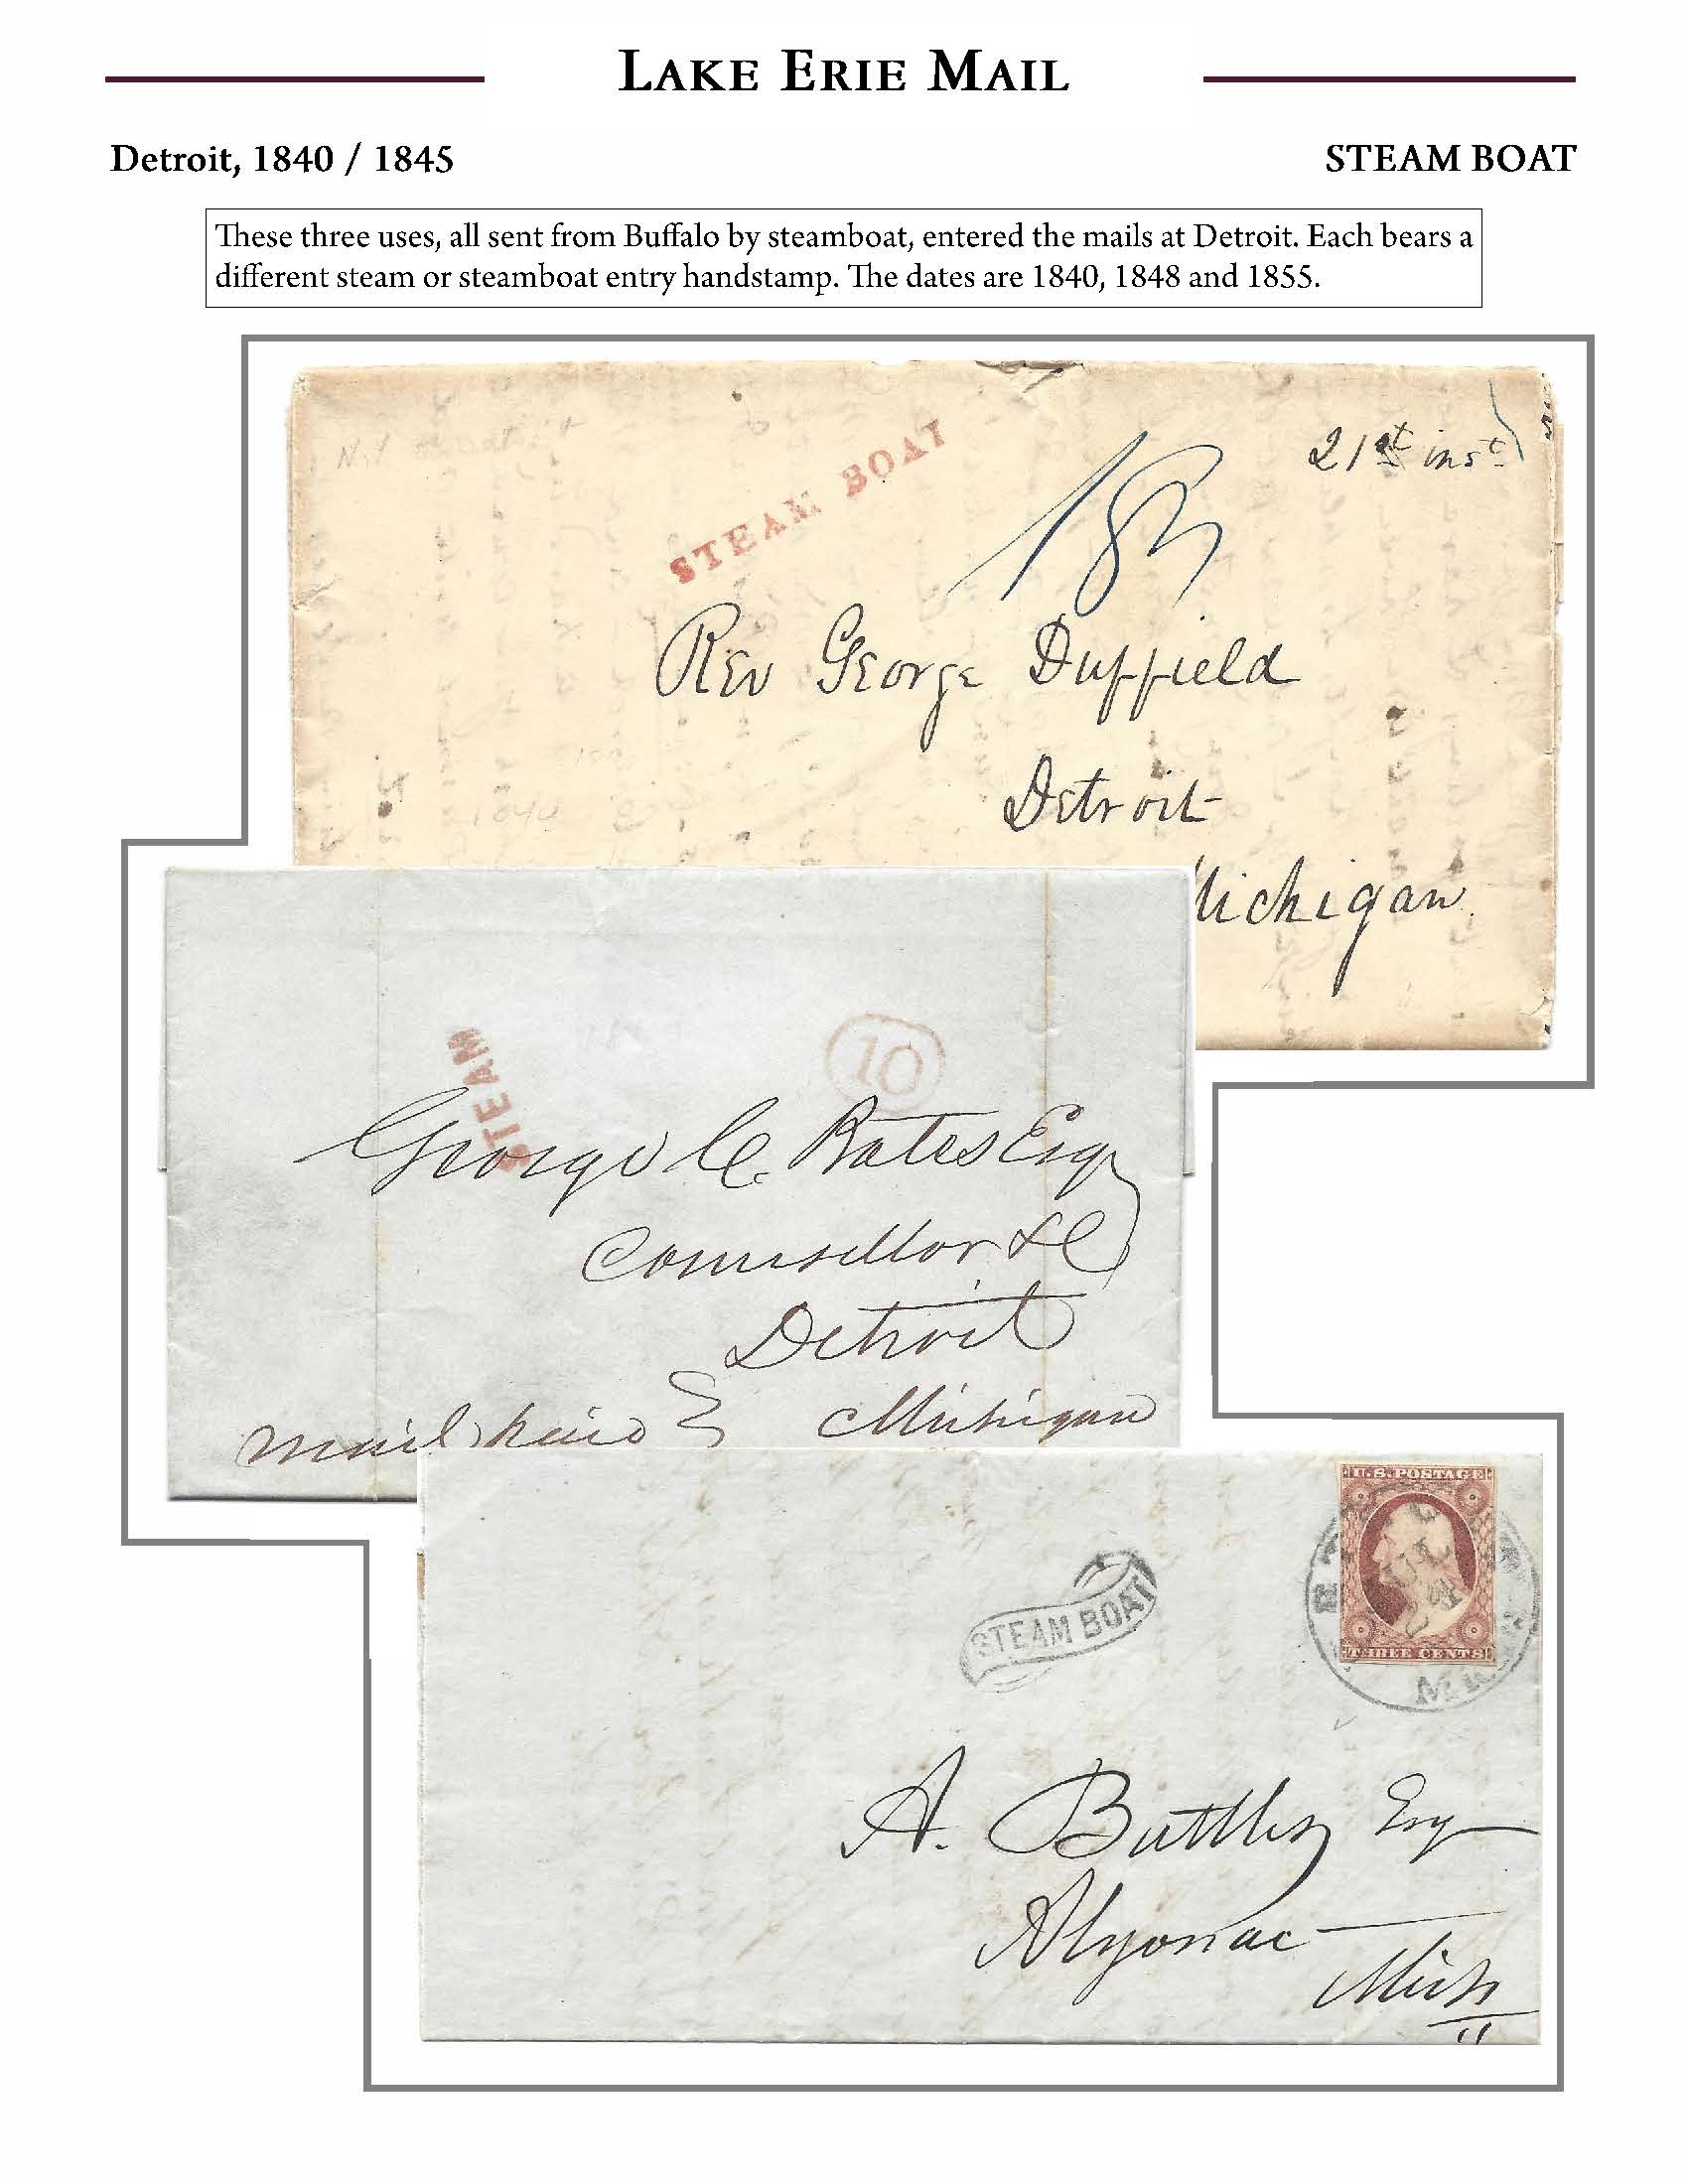 LAKE ERIE MAIL
Detroit, 1840 / 1845
STEAM BOAT
These three uses, all sent from Buffalo by steamboat, entered the mails at Detroit. Each bears a
different steam or steamboat entry handstamp. The dates are 1840, 1848 and 1855.
21st inst
STEAM BOAT
Rev George Duffield
Detroit
Michigan
STEAM
10
George C. Bates Esq
Counsellor &c
Detroit
Michigan
U.S. POSTAGE
THREE CENTS
STEAM BOAT
A. Esq
Algonac
Mich